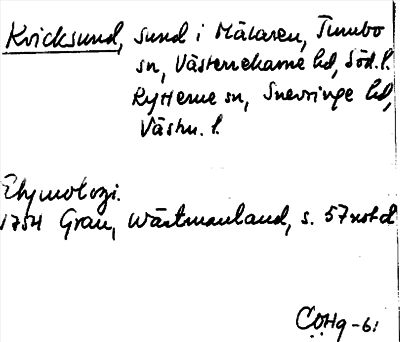 Kvicksund, sund i Mälaren, Tumbo
sn, Västerrekarne hd, Söd. l.
Rytterne sn, Snevringe hd,
Västm. l.
Etymologi.
1754 Grau, Wästmanland, s. 57 not d
COHg -61